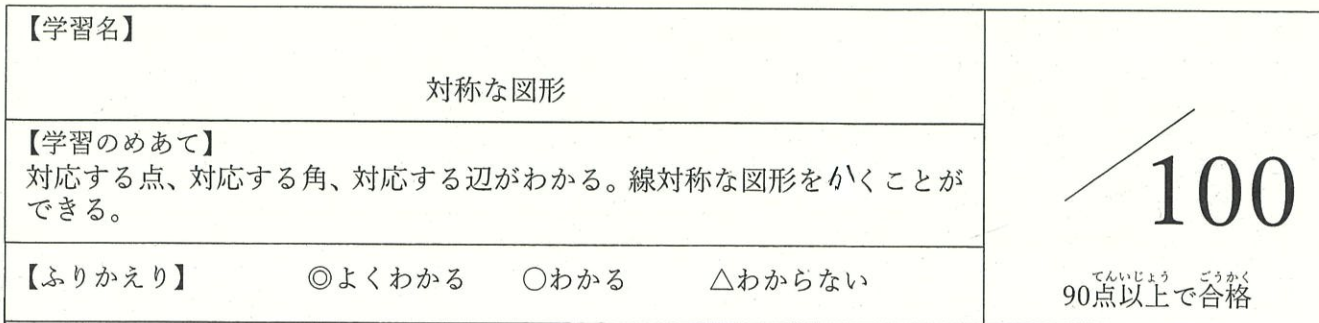 【学習名】
対称な図形
【学習のめあて】
対応する点、対応する角、対応する辺がわかる。線対称な図形をかくことが
できる。
【ふりかえり】 ◎よくわかる ○わかる △わからない
/100
てんいじょう ごうかく
90点以上で合格